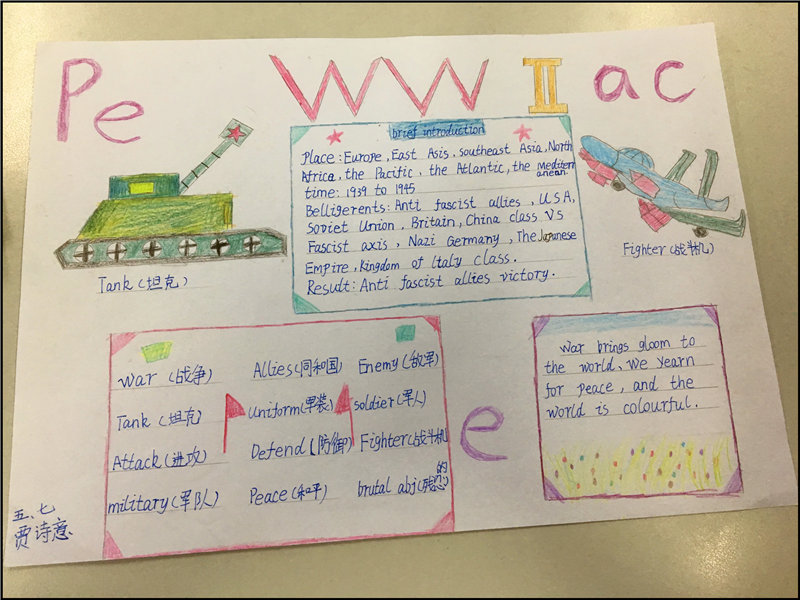 Pe WW II ac
brief introduction
Place: Europe, East Asis, southeast Asia, North
Africa, the Pacific, the Atlantic, the mediterr
anean.
time: 1939 to 1945
Belligerents: Anti fascist allies, U.S.A,
Soviet Union, Britain, China class VS
Fascist axis, Nazi Germany, The Japanese
Empire, Kingdom of Italy class.
Result: Anti fascist allies victory.
Tank (坦克)
Fighter (战斗机)
war (战争) Allies (同和国) Enemy (敌军)
Tank (坦克) uniform (军装) soldier (军人)
Attack (进攻) Defend (防御) Fighter (战斗机
military (军队) Peace (和平) brutal abj (残忍
的)
e
War brings gloom to
the world, We yearn
for peace, and the
world is colourful.
五、七
贾诗意